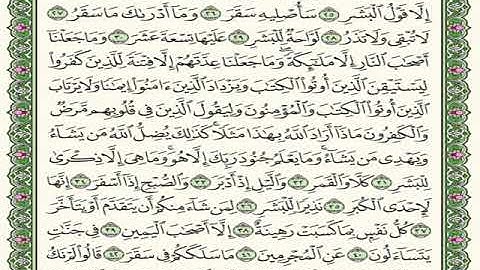 إِلَّا قَوْلُ الْبَشَرِ ٢٥ سَأُصْلِيهِ سَقَرَ ٢٦ وَمَا أَدْرَىٰكَ مَا سَقَرُ ٢٧
لَا تُبْقِي وَلَا تَذَرُ ٢٨ لَوَّاحَةٌ لِّلْبَشَرِ ٢٩ عَلَيْهَا تِسْعَةَ عَشَرَ ٣٠ وَمَا جَعَلْنَا
أَصْحَٰبَ النَّارِ إِلَّا مَلَٰٓئِكَةً ۙ وَمَا جَعَلْنَا عِدَّتَهُمْ إِلَّا فِتْنَةً لِّلَّذِينَ كَفَرُوا
لِيَسْتَيْقِنَ الَّذِينَ أُوتُوا الْكِتَٰبَ وَيَزْدَادَ الَّذِينَ ءَامَنُوا إِيمَٰنًا وَلَا يَرْتَابَ
الَّذِينَ أُوتُوا الْكِتَٰبَ وَالْمُؤْمِنُونَ وَلِيَقُولَ الَّذِينَ فِي قُلُوبِهِم مَّرَضٌ
وَالْكَٰفِرُونَ مَاذَا أَرَادَ اللَّهُ بِهَٰذَا مَثَلًا ۚ كَذَٰلِكَ يُضِلُّ اللَّهُ مَن يَشَاءُ
وَيَهْدِي مَن يَشَاءُ ۚ وَمَا يَعْلَمُ جُنُودَ رَبِّكَ إِلَّا هُوَ ۚ وَمَا هِيَ إِلَّا ذِكْرَىٰ
لِلْبَشَرِ ٣١ كَلَّا وَالْقَمَرِ ٣٢ وَاللَّيْلِ إِذْ أَدْبَرَ ٣٣ وَالصُّبْحِ إِذَا أَسْفَرَ ٣٤ إِنَّهَا
لَإِحْدَى الْكُبَرِ ٣٥ نَذِيرًا لِّلْبَشَرِ ٣٦ لِمَن شَاءَ مِنكُمْ أَن يَتَقَدَّمَ أَوْ يَتَأَخَّرَ
٣٧ كُلُّ نَفْسٍ بِمَا كَسَبَتْ رَهِينَةٌ ٣٨ إِلَّا أَصْحَٰبَ الْيَمِينِ ٣٩ فِي جَنَّٰتٍ
يَتَسَاءَلُونَ ٤٠ عَنِ الْمُجْرِمِينَ ٤١ مَا سَلَكَكُمْ فِي سَقَرَ ٤٢ قَالُوا لَمْ نَكُ